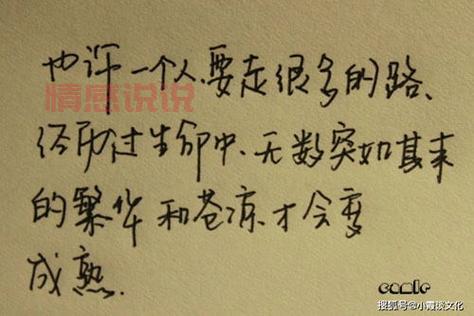 也许一个人、要走很多的路、
情感说说
经历过生命中、无数突如其来
的繁华和苍凉.才会变
成熟.
comic
搜狐号@小霞谈文化